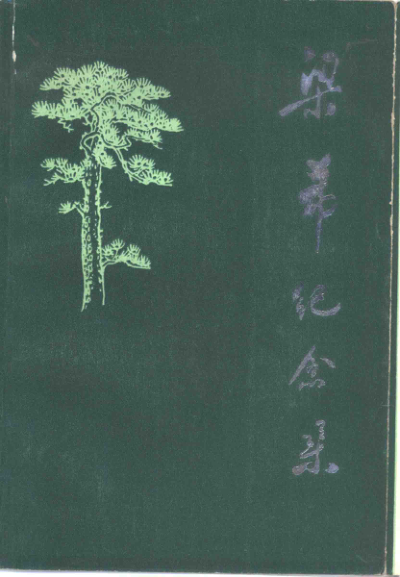 梁希纪念集